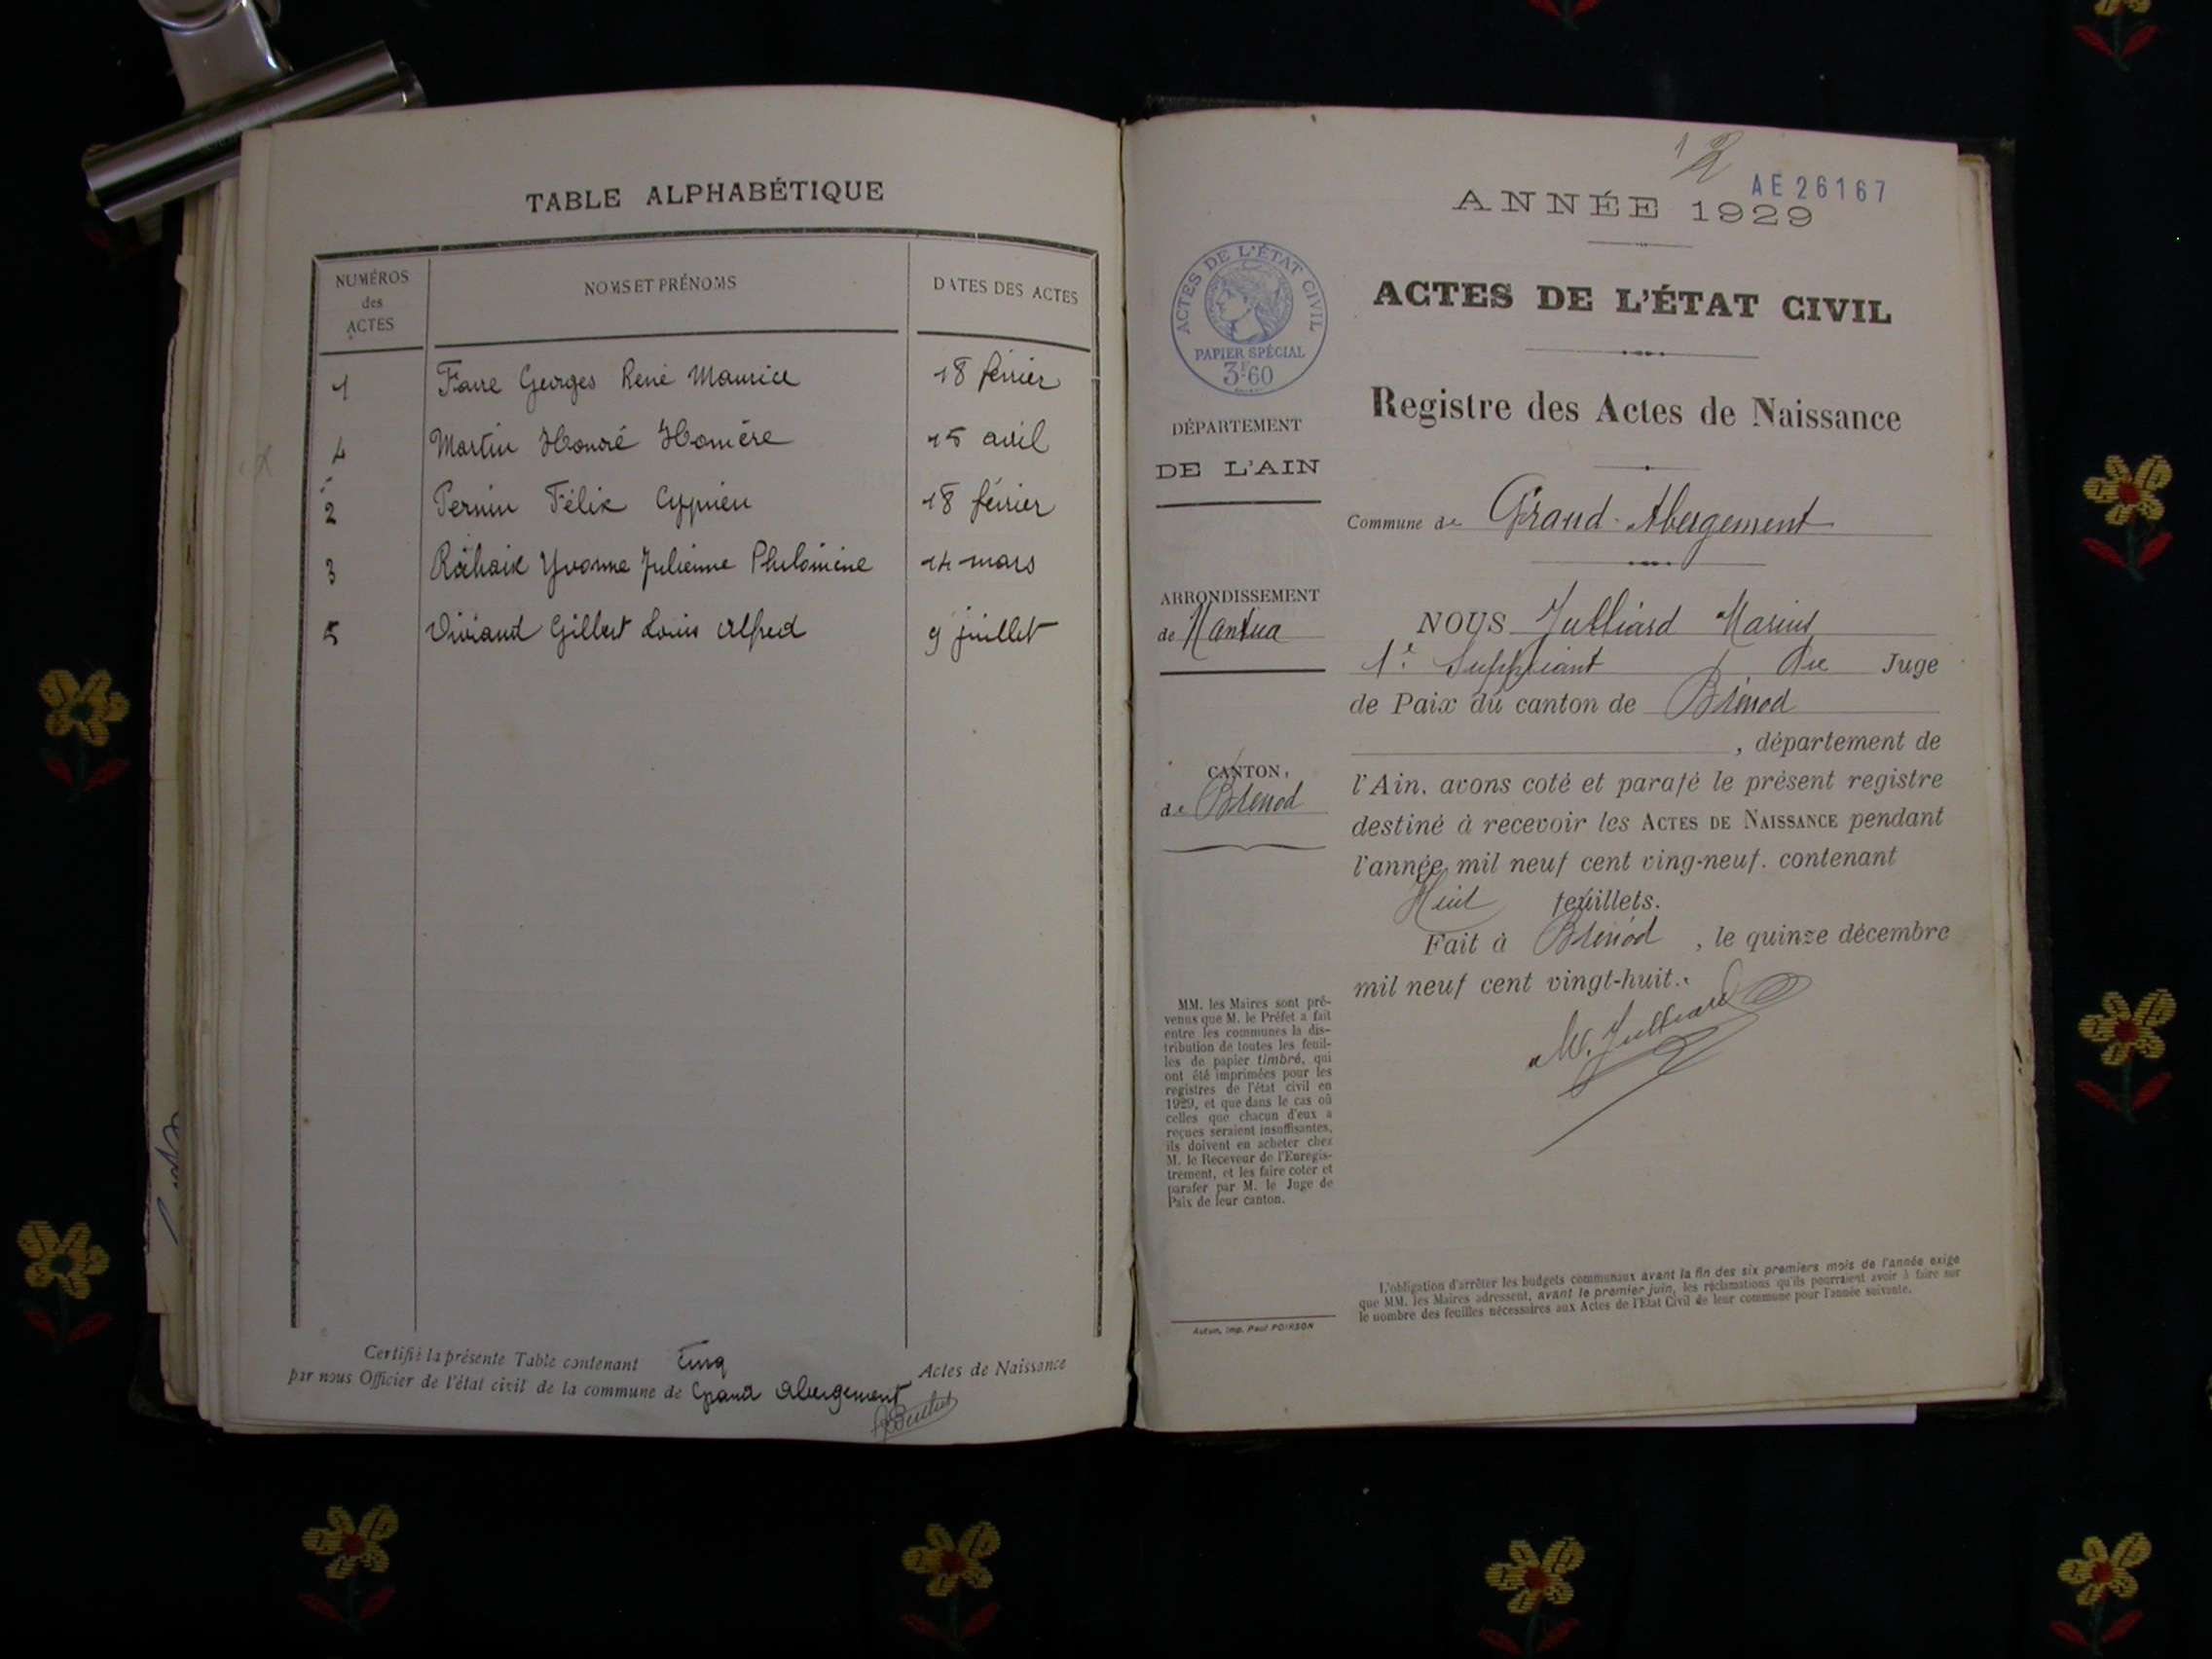 TABLE ALPHABÉTIQUE
NUMÉROS
des
ACTES
NOMS ET PRÉNOMS
DATES DES ACTES
1 Favre Georges René Maurice 18 février
4 Martin Honoré Homère 15 avril
2 Pernin Félix Cyprien 18 février
3 Yvonne Julienne Philomène 14 mars
5 Viviand Gilbert Louis Alfred 9 juillet
Certifié la présente Table contenant Cinq Actes de Naissance
par nous Officier de l'état civil de la commune de Grand Abergement
12
AE 26167
ANNÉE 1929
ACTES DE L'ÉTAT CIVIL
PAPIER SPÉCIAL
3F60
ACTES DE L'ÉTAT CIVIL
Registre des Actes de Naissance
DÉPARTEMENT
DE L'AIN
Commune de Grand-Abergement
ARRONDISSEMENT
de Nantua
CANTON
de Brénod
NOUS Julliard Marius
1er Suppléant du Juge
de Paix du canton de Brénod
, département de
l'Ain, avons coté et parafé le présent registre
destiné à recevoir les ACTES DE NAISSANCE pendant
l'année mil neuf cent ving-neuf. contenant
Huit feuillets.
Fait à Brénod , le quinze décembre
mil neuf cent vingt-huit.
M. Julliard
MM. les Maires sont pré-
venus que M. le Préfet a fait
entre les communes la dis-
tribution de toutes les feuil-
les de papier timbré, qui
ont été imprimées pour les
registres de l'état civil en
1929, et que dans le cas où
celles que chacun d'eux a
reçues seraient insuffisantes,
ils doivent en acheter chez
M. le Receveur de l'Enregis-
trement, et les faire coter et
parafer par M. le Juge de
Paix de leur canton.
Autun, Imp. Paul POIRSON
L'obligation d'arrêter les budgets communaux avant la fin des six premiers mois de l'année exige
que MM. les Maires adressent, avant le premier juin, les réclamations qu'ils pourraient avoir à faire sur
le nombre des feuilles nécessaires aux Actes de l'Etat Civil de leur commune pour l'année suivante.